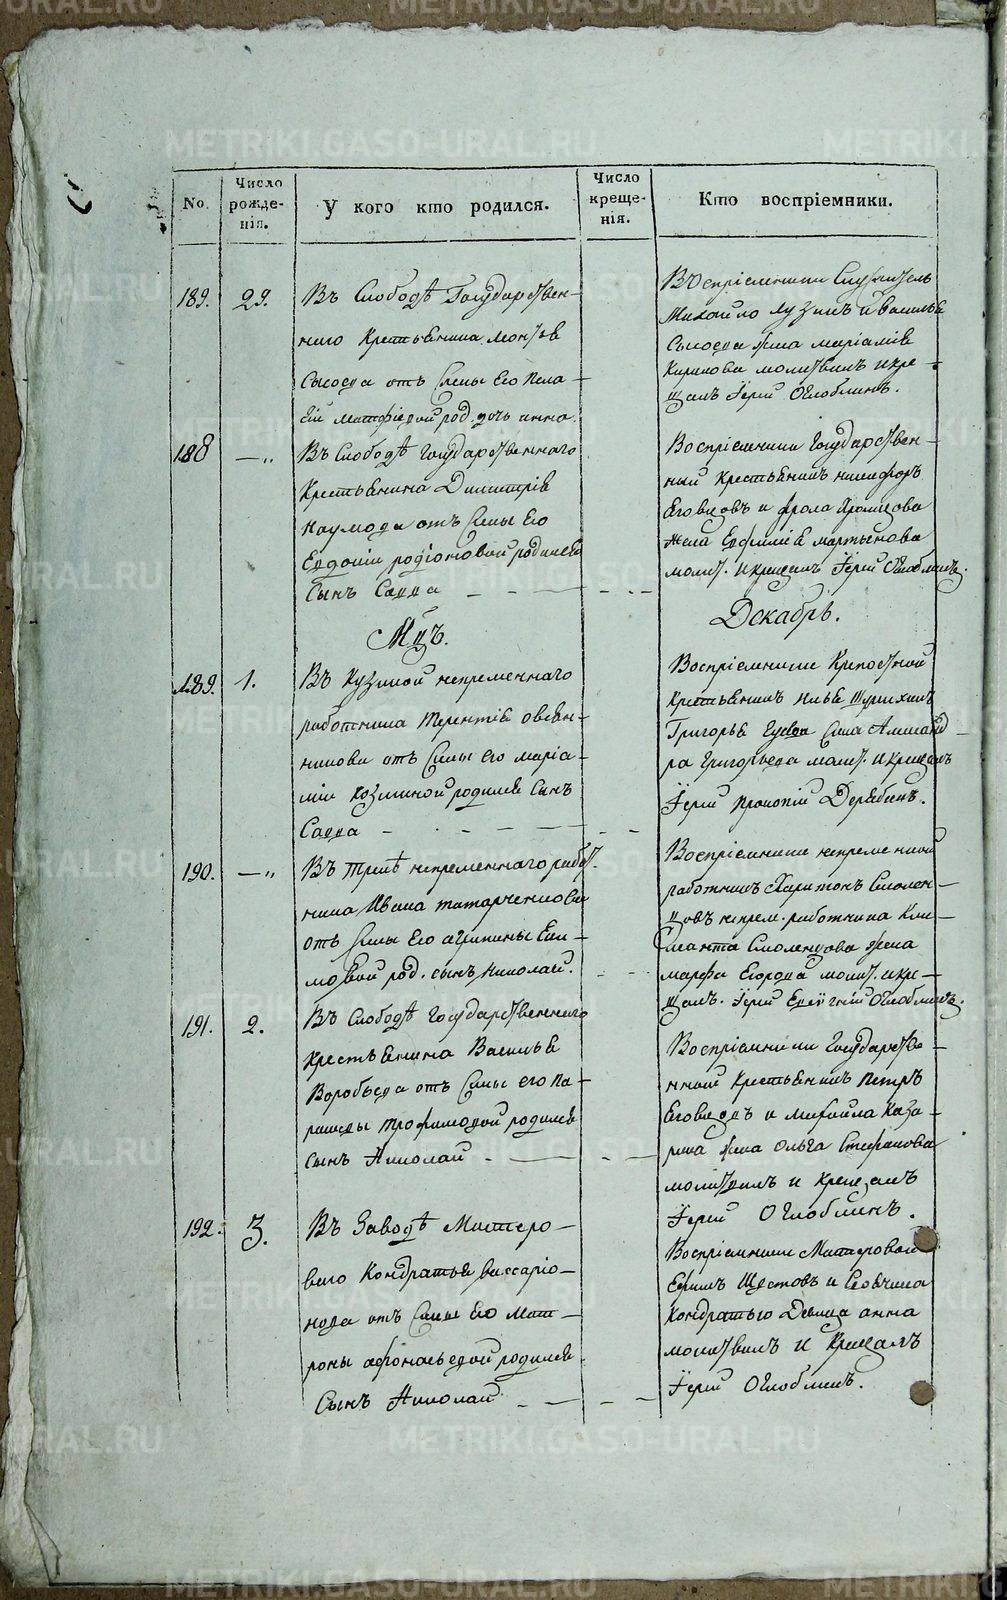 METRIKI.GASO-URAL.RU
No.
Число рожде-нія.
У кого кто родился.
Число креще-нія.
Кто воспріемники.
189.
29.
Въ Слободѣ Государствен-
наго Крестьянина
Сысоева отъ Жены Его Пела-
гіи род. дочь Анна.
Воспріемники Служитель
Михайло Лузинъ и Василья
Сысоева жена Маріамія
молитвилъ и кре-
щалъ Іерей Оглоблинъ.
188
—„
Въ Слободѣ Государственнаго
Крестьянина Димитрія
Наумова отъ Жены Его
Евдокіи Родіоновой родился
Сынъ Савва
Воспріемники Государствен-
ный Крестьянинъ Никифоръ
и Фрола
жена Евфимія Мартынова
молит. и крещалъ Іерей Оглоблинъ.
Мцъ.
Декабрь.
189.
1.
Въ Кузиной непременнаго
работника Терентія Овсян-
никова отъ Жены его Маріа-
міи Козминой родился Сынъ
Савва
Воспріемники Крепостной
Крестьянинъ Илья
Григорья Гусева Жена Александ
ра Григорьева молит. и Крещалъ
Іерей Прокопій Дерябинъ.
190.
—„
Въ непременнаго работ.
ника Ивана Татарченкова
отъ Жены Его Агрипины Еки-
мовой род. сынъ Николай.
Воспріемники непременной
работникъ Харитонъ Смолен-
цовъ непрем. работника Кли-
Смоленцова жена
Марфа Егорова молит. и кре-
щалъ. Іерей Евгеній Оглоблинъ.
191.
2.
Въ Слободѣ Государственнаго
Крестьянина Василья
Воробьева отъ Жены его Па-
расковы Трофимовой родился
сынъ Николай
Воспріемники Государстве-
нный Крестьянинъ Петръ
и Михайла Каза-
рина жена Ольга Стефанова
молитвилъ и Крещалъ
Іерей Оглоблинъ.
192.
3.
Въ Заводѣ Мастеро-
ваго Кондратья Виссаріо-
нова отъ Жены Его Мат-
роны Афонасьевой родился
Сынъ Николай
Воспріемники Мастеровой
Ефимъ Шестовъ и
Кондратью Девица Анна
молитвилъ и Крещалъ
Іерей Оглоблинъ.